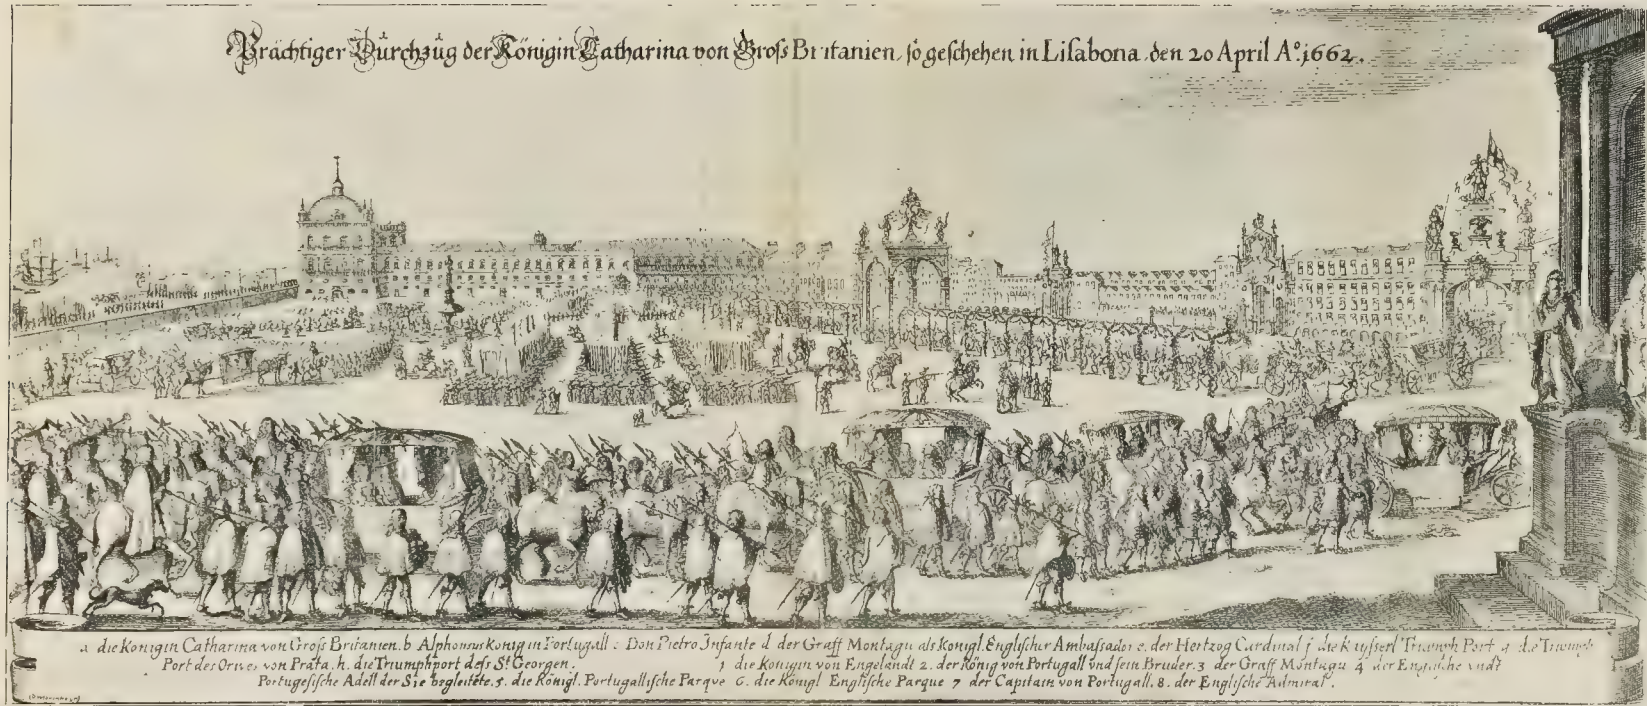 Prächtiger Durchzüg der Königin Catharina von Groſs Britanien, ſo geſchehen in Liſabona den 20 April Aº. 1662.
a die Konigin Catharina von Groſs Britanien. b Alphonsus konig in Portugall c Don Pietro Infante d der Graff Montagu als Konigl. Engliſcher Ambaſsador e. der Hertzog Cardinal f die Triumph Port g die Triumph
Port des Orives von Prata. h. die Triumphport deſs St Georgen. 1 die Konigin von Engelandt 2. der König von Portugall vnd ſein Bruder. 3 der Graff Montagu 4 der Engliſche vndt
Portugeſiſche Adell der Sie begleitete. 5. die Königl. Portugalliſche Parque 6. die Königl Engliſche Parque 7 der Capitain von Portugall. 8. der Engliſche Admiral.